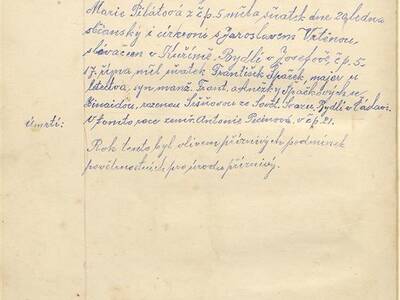 Marie Pilátová z čp. 5 měla sňatek dne 2. ledna
občansky i církevně s Jaroslavem
v Kuřímě. Bydlí v Josefově, čp. 5.
17. října měl sňatek František Špaček, major v
letectva, syn manž. Frant. a Anežky Špačkových
rozenou ze Sovt. Svazu. Bydlí v Čáslavi.
Úmrtí: V tomto roce zemř. Antonie Pecinová, v čp. 21.
Rok tento byl vlivem příznivých podmínek
povětrnostních pro úrodu příznivý.